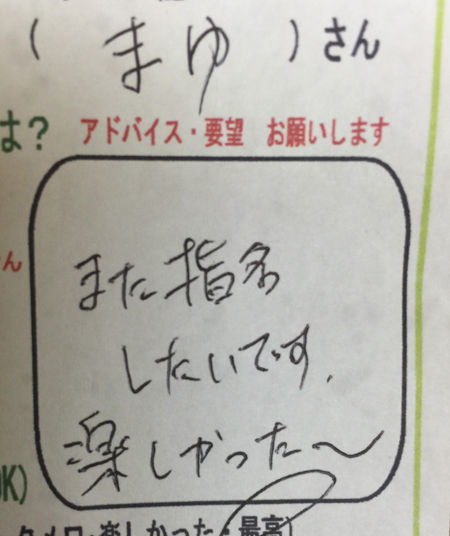 (まゆ)さん
は? アドバイス・要望 お願いします
ん
また指名
したいです.
楽しかった〜
OK)
楽しかった・最高)